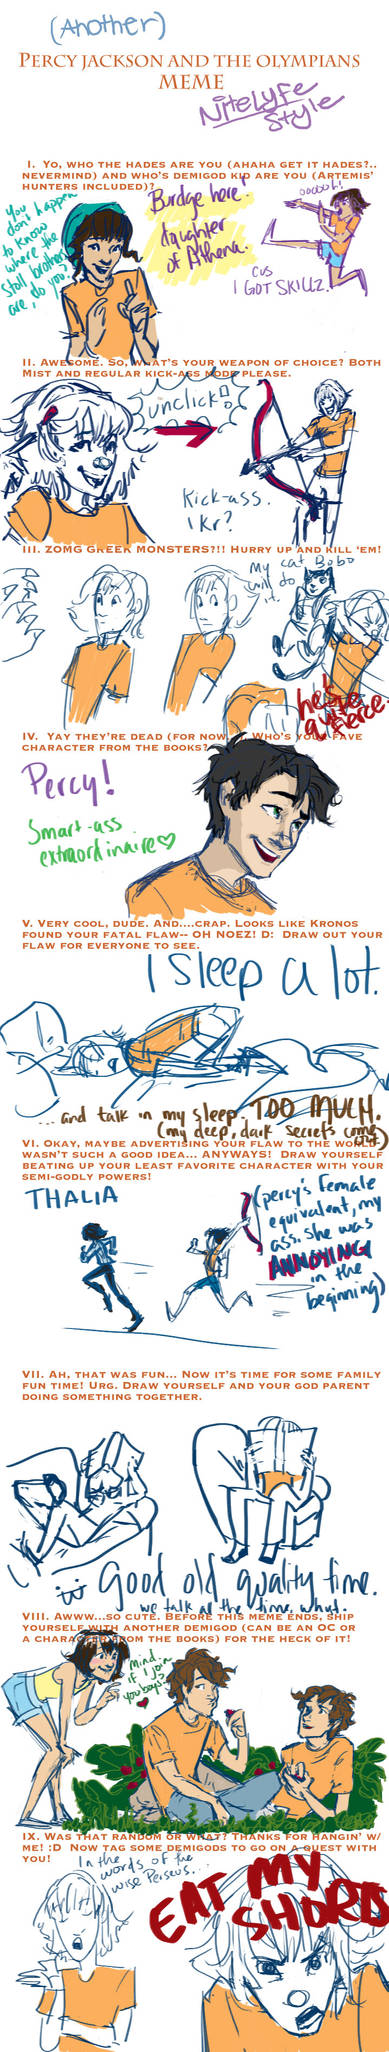 (Another)
Percy Jackson and the Olympians
Meme
Nitelyfe
Style
I. Yo, who the Hades are you (ahaha get it Hades?..
nevermind) and who's demigod kid are you (Artemis'
hunters included)?
You
don't happen
to know
where the
Stoll brothers
are, do you?
Burdge here!
daughter
of Athena.
oooooh!
cus
I GOT SKILLZ.
II. Awesome. So, what's your weapon of choice? Both
Mist and regular kick-ass mode please.
unclick!
Kick-ass.
I kr?
III. ZOMG GREEK MONSTERS?!! Hurry up and kill 'em!
my cat Bobo
will do
it.
he's
quite
fierce.
IV. Yay they're dead (for now). Who's your fave
character from the books?
Percy!
Smart-ass
extraordinaire♡
V. Very cool, dude. And....crap. Looks like Kronos
found your fatal flaw-- OH NOEZ! D: Draw out your
flaw for everyone to see.
I sleep a lot.
...and talk in my sleep. TOO MUCH.
(my deep, dark secrets come out)
VI. Okay, maybe advertising your flaw to the world
wasn't such a good idea... ANYWAYS! Draw yourself
beating up your least favorite character with your
semi-godly powers!
THALIA
(percy's female
equivalent, my
ass. she was
ANNOYING
in the
beginning)
VII. Ah, that was fun... Now it's time for some family
fun time! Urg. Draw yourself and your god parent
doing something together.
Good old quality time.
we talk all the time, what.
VIII. Awww...so cute. Before this meme ends, ship
yourself with another demigod (can be an OC or
a character from the books) for the heck of it!
Mind
if I join
you boys?
IX. Was that random or what? Thanks for hangin' w/
me! :D Now tag some demigods to go on a quest with
you!
In the
words of the
wise Perseus...
EAT MY
SHORTS